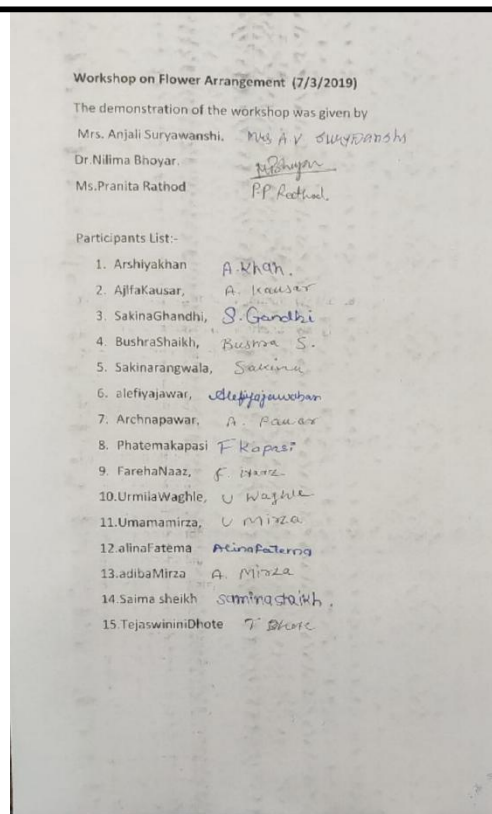 Workshop on Flower Arrangement (7/3/2019)
The demonstration of the workshop was given by
Mrs. Anjali Suryawanshi. Mrs A.V
Dr.Nilima Bhoyar.
Ms.Pranita Rathod P.P. Rathod.
Participants List:-
1. Arshiyakhan A.Khan.
2. AjlfaKausar, A. Kausar
3. SakinaGhandhi, S.Gandhi
4. BushraShaikh, Bushra S.
5. Sakinarangwala, Sakina
6. alefiyajawar,
7. Archnapawar, A. Pawar
8. Phatemakapasi F Kapasi
9. FarehaNaaz, F. Naaz
10.UrmilaWaghle, U Waghle
11.Umamamirza, U Mirza
12.alinaFatema AlinaFatema
13.adibaMirza A. Mirza
14.Saima sheikh
15.TejaswininiDhote T Dhote